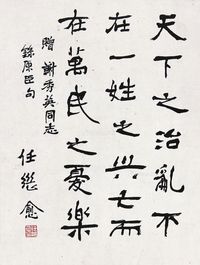 天下之治亂不
在一姓之兴亡而
在萬民之憂樂
贈謝秀英同志
錄原臣句
任继愈